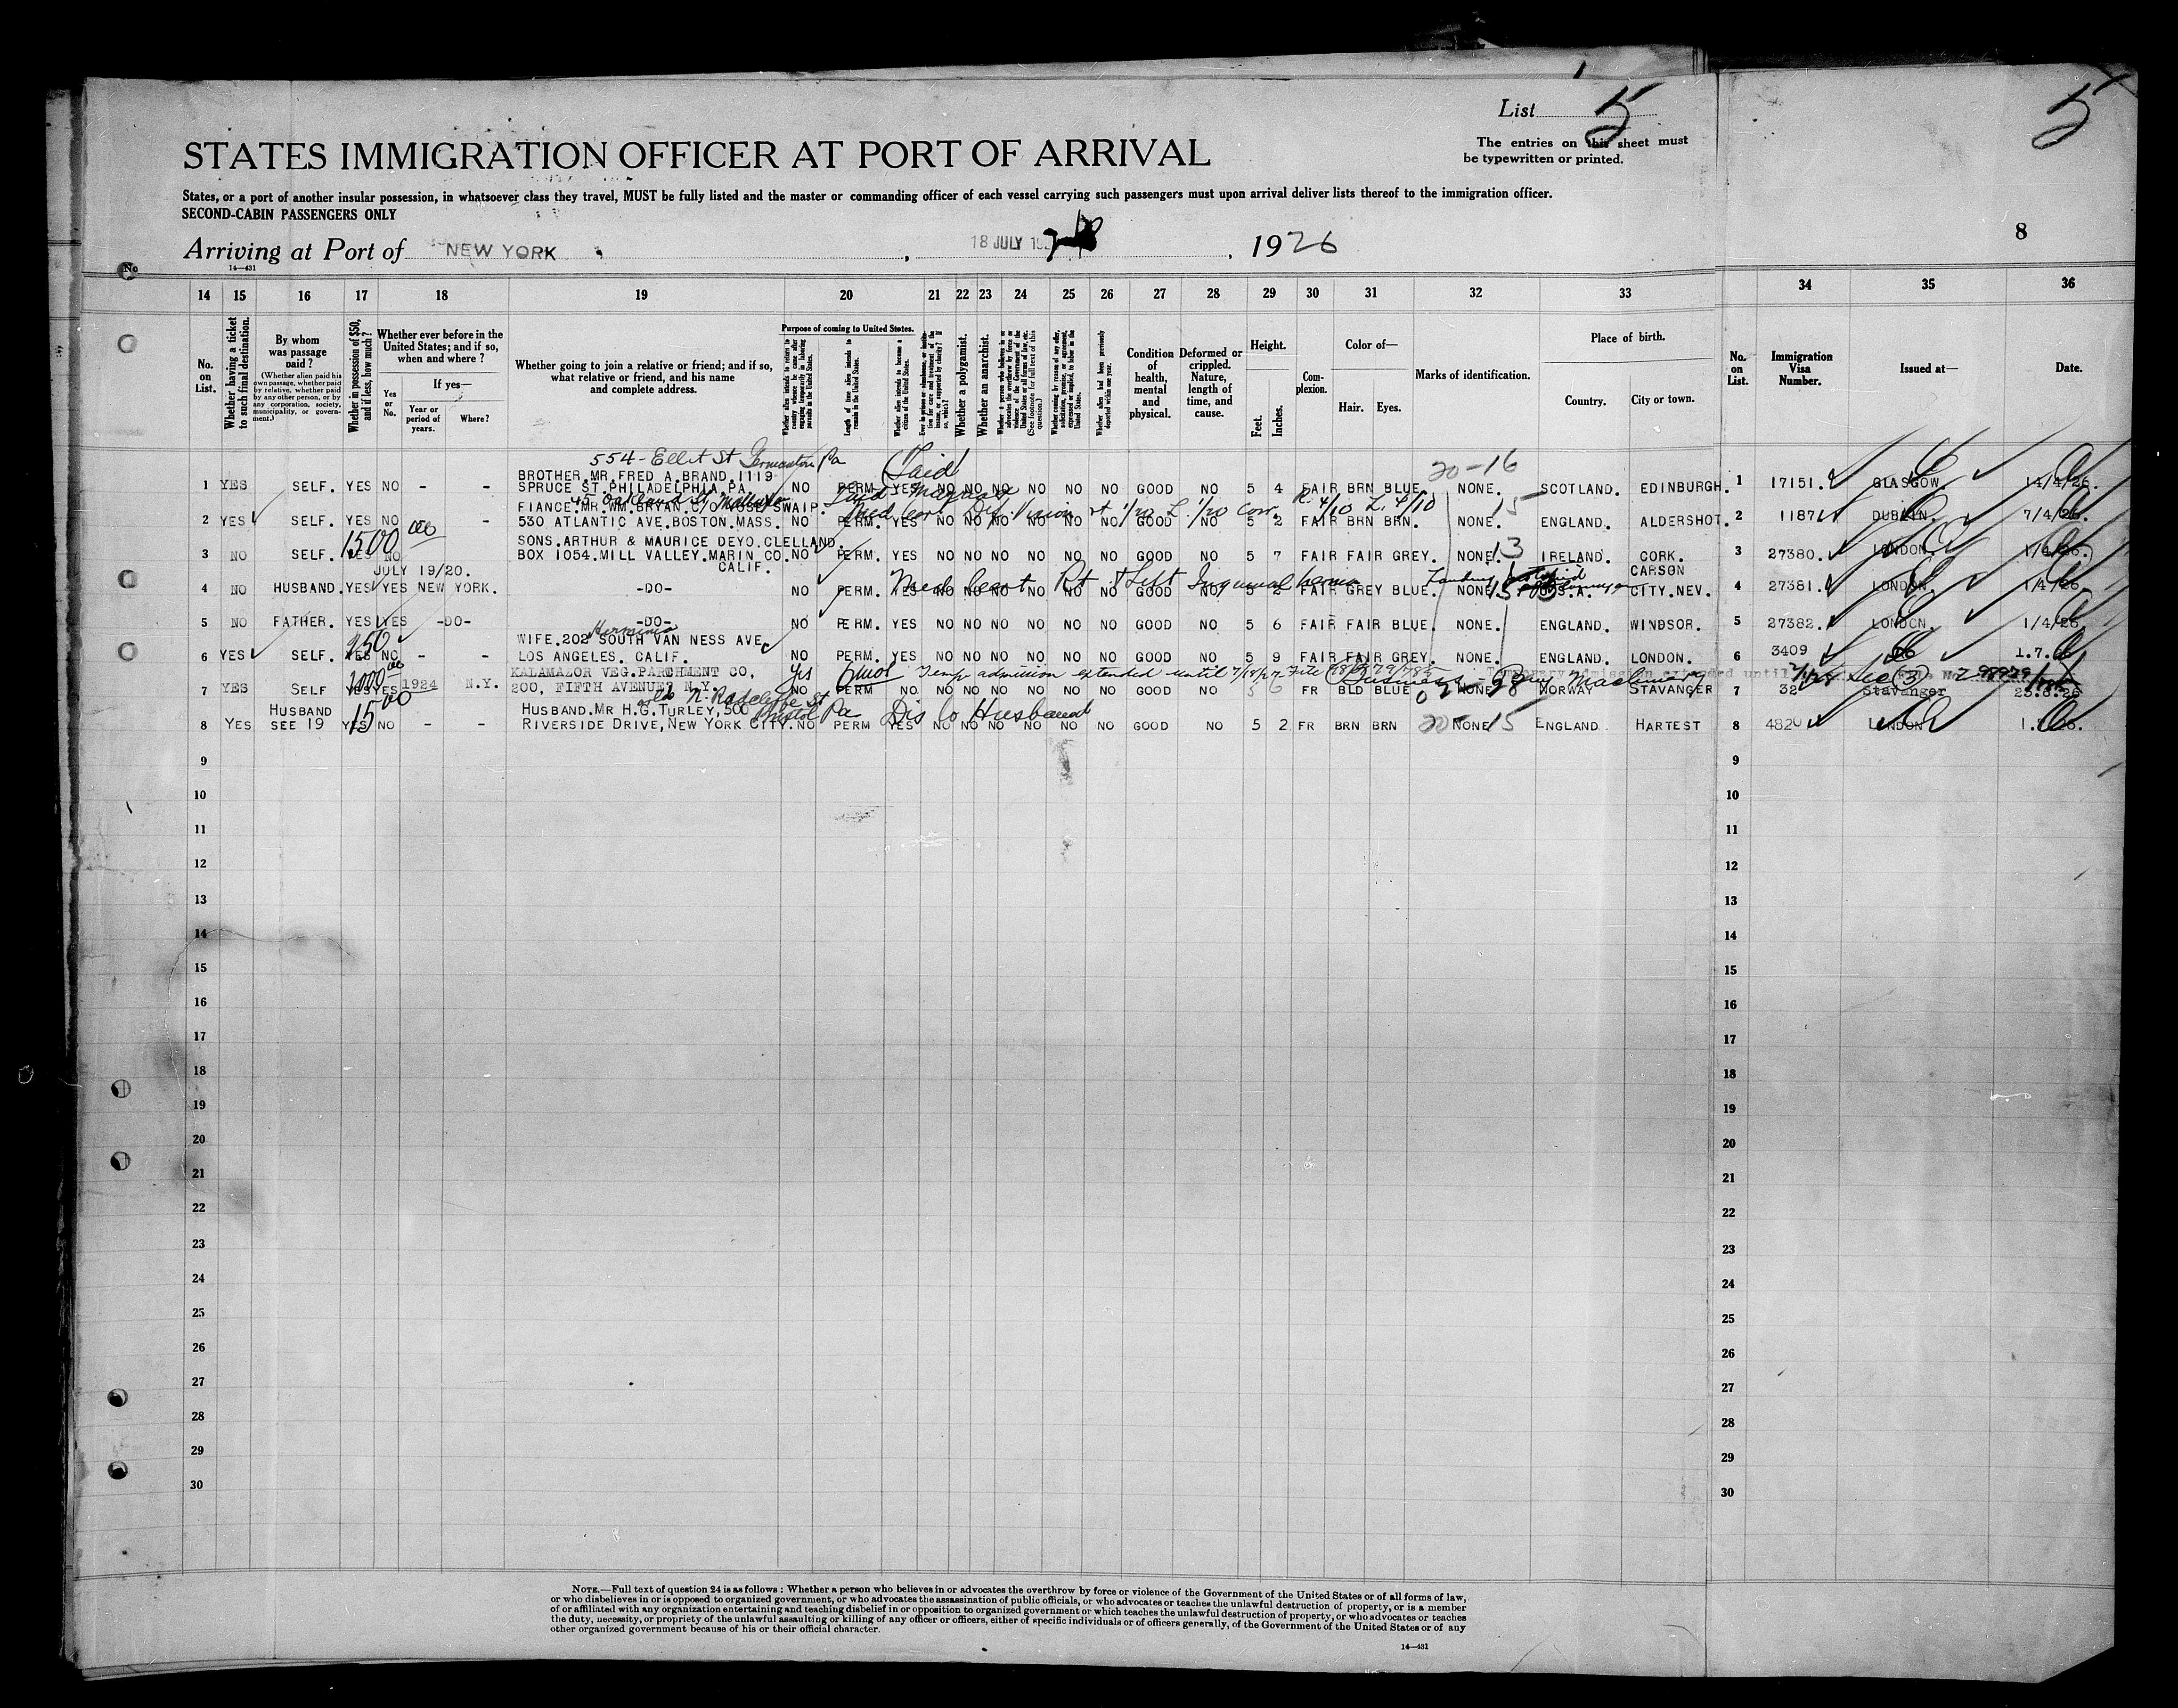 List 5
5
The entries on this sheet must
be typewritten or printed.
STATES IMMIGRATION OFFICER AT PORT OF ARRIVAL
States, or a port of another insular possession, in whatsoever class they travel, MUST be fully listed and the master or commanding officer of each vessel carrying such passengers must upon arrival deliver lists thereof to the immigration officer.
SECOND-CABIN PASSENGERS ONLY
8
Arriving at Port of NEW YORK, 18 JULY, 1926
14—431
No
14 15 16 17 18 19 20 21 22 23 24 25 26 27 28 29 30 31 32 33 34 35 36
No. on List.
Whether having a ticket to such final destination.
By whom was passage paid?
(Whether alien paid his own passage, whether paid by relative, whether paid by any other person, or by any corporation, society, municipality, or government.)
Whether in possession of $50, and if less, how much?
Whether ever before in the United States; and if so, when and where?
Yes or No.
If yes—
Year or period of years.
Where?
Whether going to join a relative or friend; and if so, what relative or friend, and his name and complete address.
Purpose of coming to United States.
Length of time alien intends to remain in the United States.
Whether alien intends to become a citizen of the United States.
Whether a polygamist.
Whether an anarchist.
Condition of health, mental and physical.
Deformed or crippled. Nature, length of time, and cause.
Height.
Feet.
Inches.
Complexion.
Color of—
Hair.
Eyes.
Marks of identification.
Place of birth.
Country.
City or town.
No. on List.
Immigration Visa Number.
Issued at—
Date.
554 - Ellet St Germantown Pa
20-16
BROTHER.MR.FRED A.BRAND.1119
1 YES SELF. YES NO - - SPRUCE ST.PHILADELPHIA.PA. NO PERM. YES NO NO NO NO NO NO GOOD NO 5 4 FAIR BRN BLUE. NONE. SCOTLAND. EDINBURGH. 1 17151. GLASGOW. 14/4/26.
45 Oakland St
FIANCE.MR.WM.BRYAN.C/O
2 YES SELF. YES NO - 530 ATLANTIC AVE.BOSTON.MASS. NO PERM. YES NO NO NO NO NO NO GOOD NO 5 2 FAIR BRN BRN. NONE. 15 ENGLAND. ALDERSHOT. 2 1187 DUBLIN. 7/4/26.
1500 00
SONS.ARTHUR & MAURICE DEYO.CLELLAND.
3 NO SELF. YES NO BOX 1054.MILL VALLEY.MARIN CO. NO PERM. YES NO NO NO NO NO NO GOOD NO 5 7 FAIR FAIR GREY. NONE. 13 IRELAND. CORK. 3 27380. LONDON. 1/4/26.
CALIF.
JULY 19/20.
CARSON
4 NO HUSBAND. YES YES NEW YORK. -DO- NO PERM. YES NO NO NO NO NO NO GOOD NO 5 2 FAIR GREY BLUE. NONE. U.S.A. CITY.NEV. 4 27381. LONDON. 1/4/26.
Med cert Rt & Left Inguinal hernia
5 NO FATHER. YES YES -DO- -DO- NO PERM. YES NO NO NO NO NO NO GOOD NO 5 6 FAIR FAIR BLUE. NONE. ENGLAND. WINDSOR. 5 27382. LONDON. 1/4/26.
250
WIFE.202 SOUTH VAN NESS AVE,
6 YES SELF. YES NO - - LOS ANGELES. CALIF. NO PERM. YES NO NO NO NO NO NO GOOD NO 5 9 FAIR FAIR GREY. NONE. ENGLAND. LONDON. 6 3409 1.7.
Yes 6 mos Temp admission extended until 7/18/27 File
1000 00
KALAMAZOR VEG.PARCHMENT CO,
7 YES SELF YES YES 1924 N.Y. 200, FIFTH AVENUE? N.Y. NO PERM NO NO NO NO NO NO NO GOOD NO 5 6 FR BLD BLUE NONE NORWAY STAVANGER 7 32 Stavanger 25.6.26
Business - Buy Machinery
N. Radcliffe St
Bristol Pa
Dis to Husband
1500
HUSBAND HUSBAND.MR H.G.TURLEY,500
8 YES SEE 19 YES NO - - RIVERSIDE DRIVE,NEW YORK CITY. NO PERM YES NO NO NO NO NO NO GOOD NO 5 2 FR BRN BRN NONE 15 ENGLAND HARTEST 8 4820 LONDON
9 9
10 10
11 11
12 12
13 13
14 14
15 15
16 16
17 17
18 18
19 19
20 20
21 21
22 22
23 23
24 24
25 25
26 26
27 27
28 28
29 29
30 30
NOTE.—Full text of question 24 is as follows: Whether a person who believes in or advocates the overthrow by force or violence of the Government of the United States or of all forms of law,
or who disbelieves in or is opposed to organized government, or who advocates the assassination of public officials, or who advocates or teaches the unlawful destruction of property, or is a member
of or affiliated with any organization entertaining and teaching disbelief in or opposition to organized government or which teaches the unlawful destruction of property, or who advocates or teaches
the duty, necessity, or propriety of the unlawful assaulting or killing of any officer or officers, either of specific individuals or of officers generally, of the Government of the United States or of any
other organized government because of his or their official character.
14—431